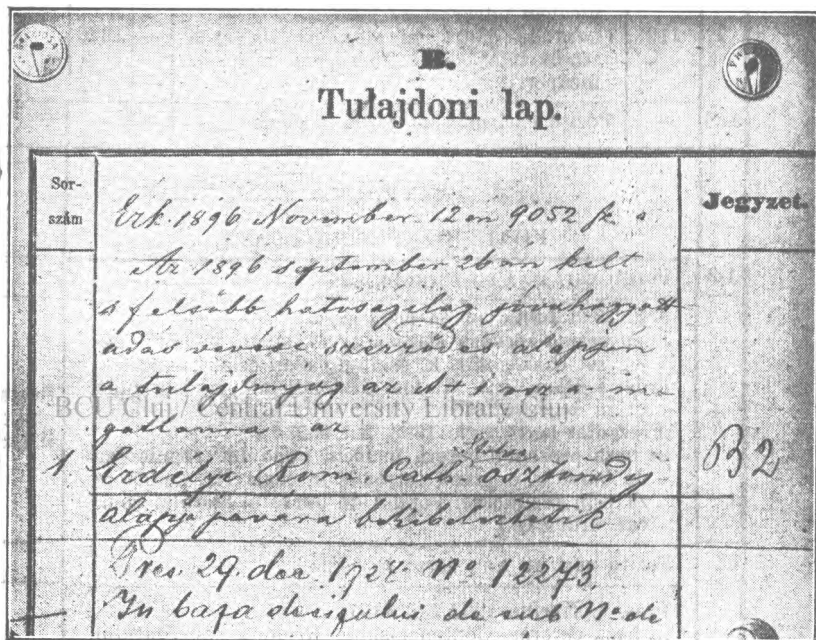 B.
Tulajdoni lap.
Sor-
szám
Jegyzet.
Erk. 1896 November 12 en 9052 sz a
Az 1896 september 26 an kelt
s felsőbb hatoságilag jovahagyott
adas vevési szerződés alapján
a tulajdonjog az A + 1
BCU Cluj / Central University Library Cluj
az
1 Erdelyi Rom. Cath. osztondij B2
alapja javára bekebeleztetik
Pres. 29. dec. 1927 No 12273
In baza decisului de sub No de